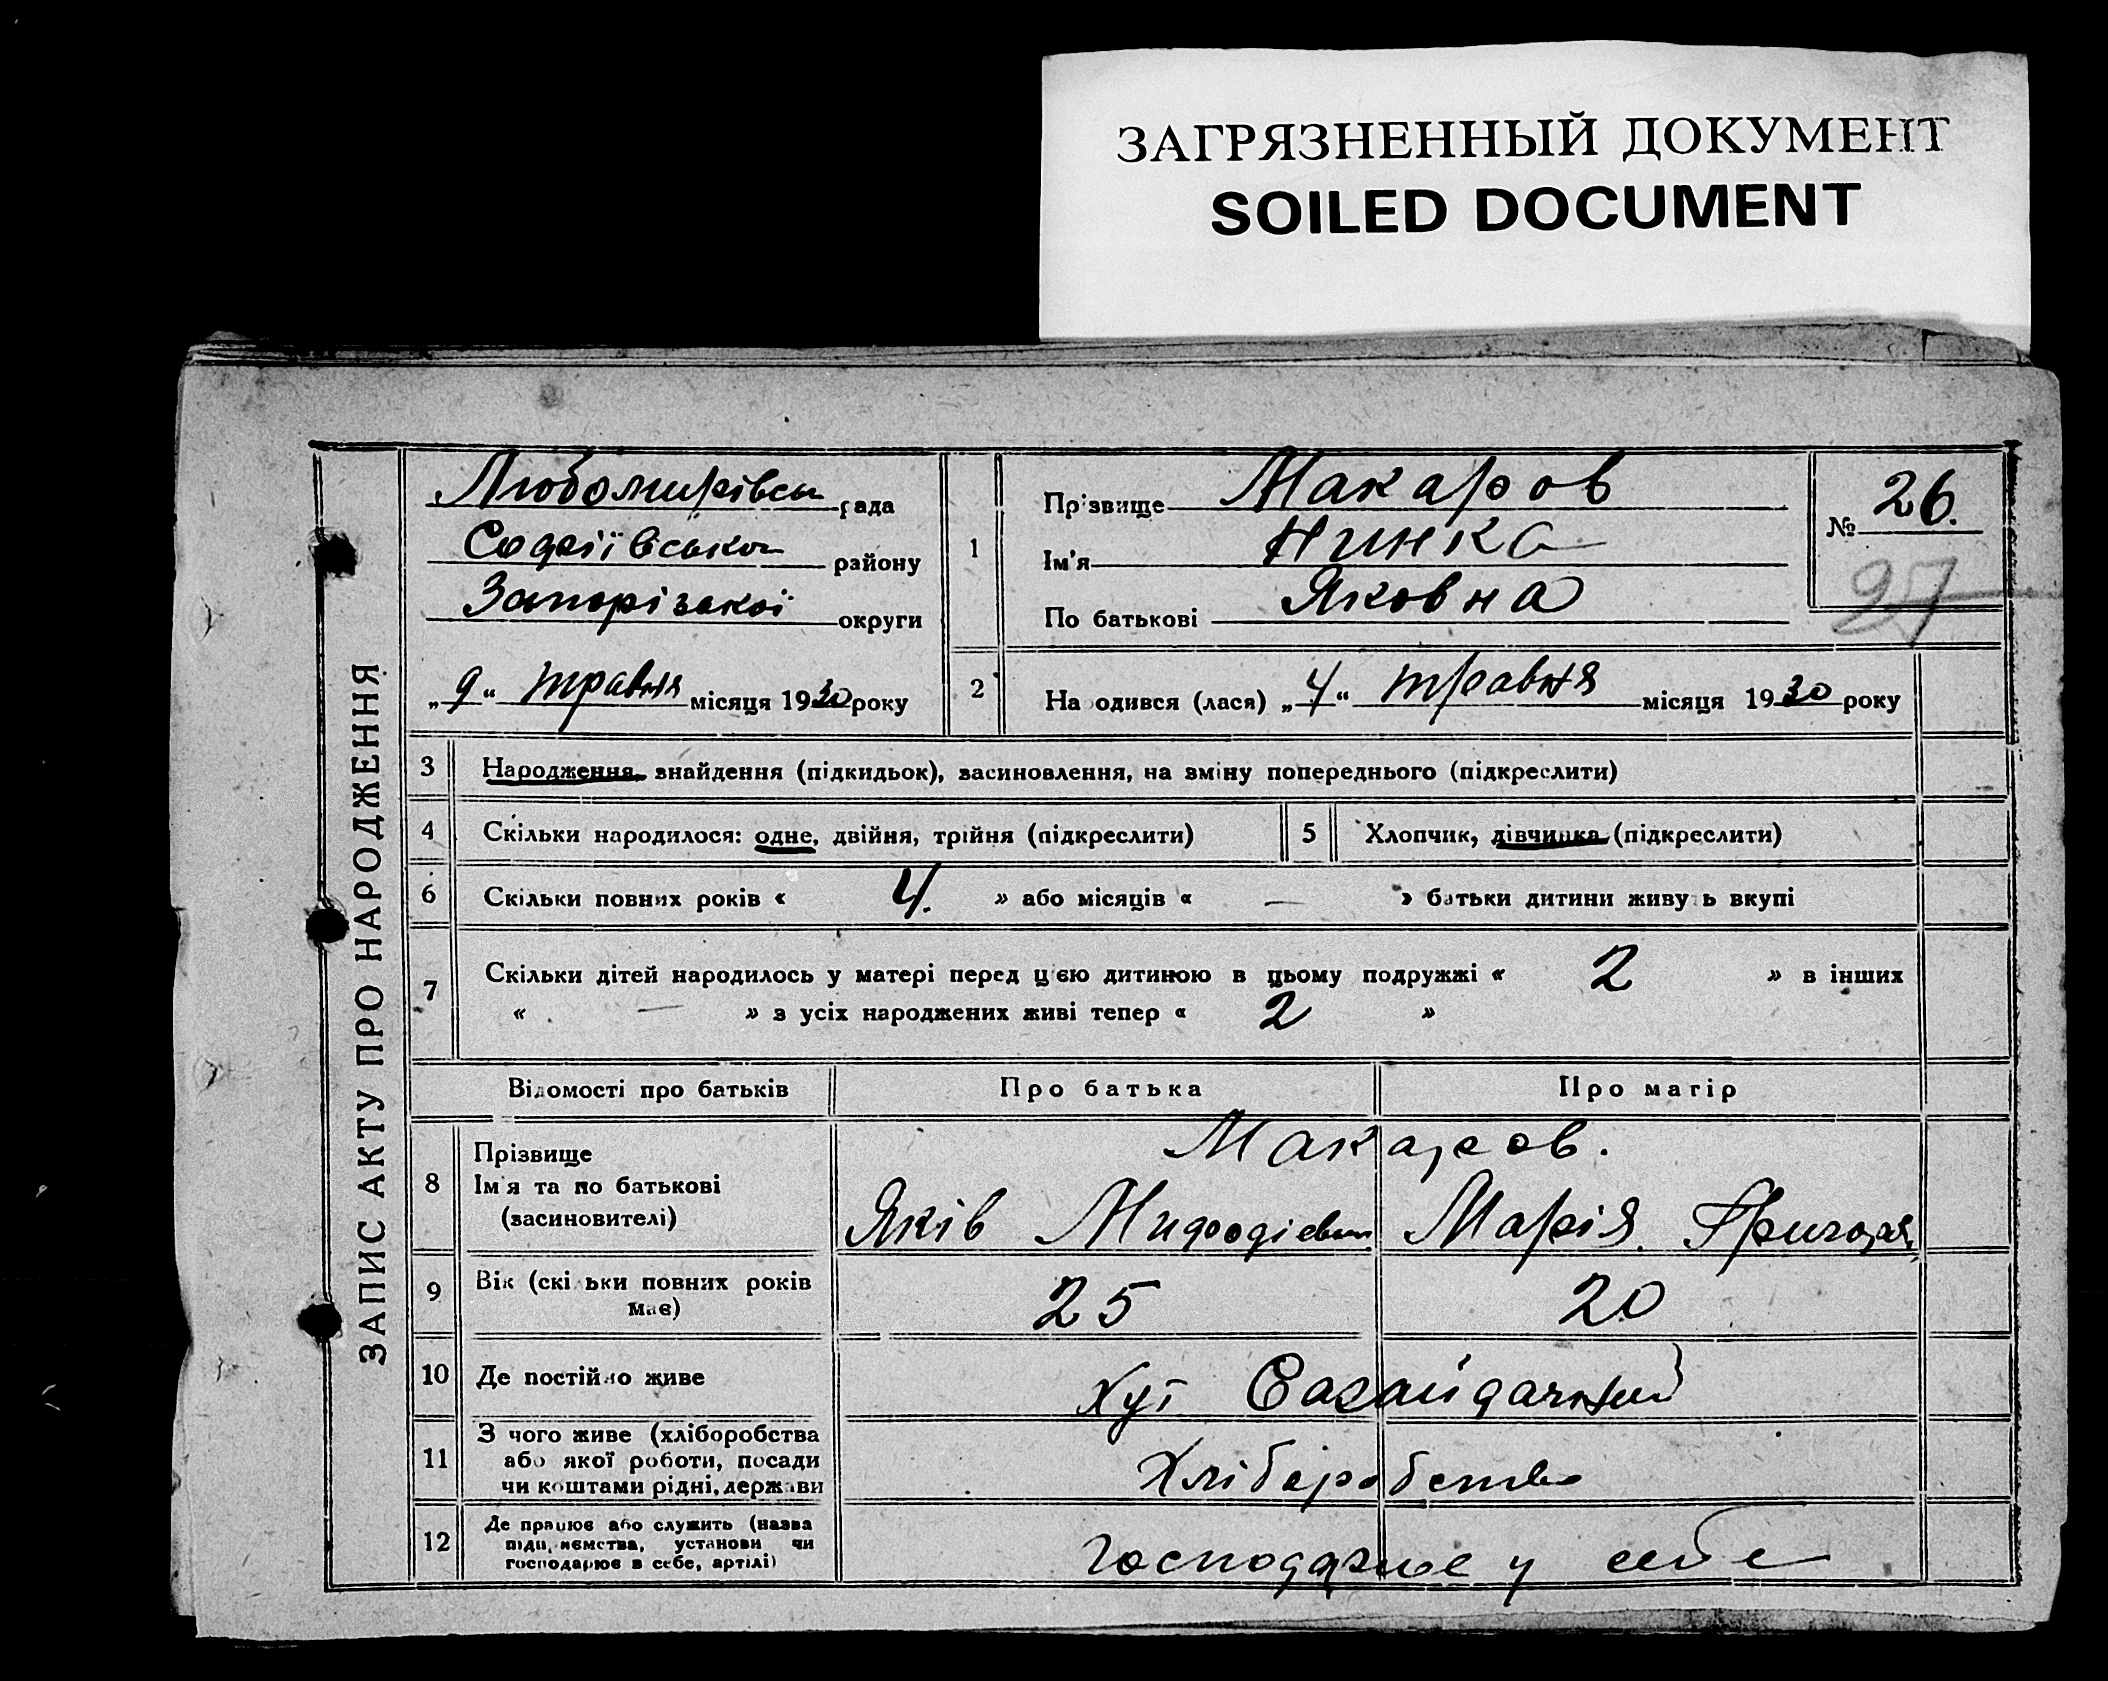 ЗАГРЯЗНЕННЫЙ ДОКУМЕНТ
SOILED DOCUMENT
ЗАПИС АКТУ ПРО НАРОДЖЕННЯ
Любомирівськ рада
Софіївського району
Запорізької округи
„9“ травня місяця 1930 року
1
Прізвище Макаров
Ім'я Нинка
По батькові Яковна
№ 26.
27
2 Народився (лася) „4“ травня місяця 1930 року
3 Народження, знайдення (підкидьок), засиновлення, на зміну попереднього (підкреслити)
4 Скільки народилося: одне, двійня, трійня (підкреслити)
5 Хлопчик, дівчинка (підкреслити)
6 Скільки повних років « 4. » або місяців « — » батьки дитини живуть вкупі
7 Скільки дітей народилось у матері перед цією дитиною в цьому подружжі « 2 » в інших
« — » з усіх народжених живі тепер « 2 »
Відомості про батьків Про батька Про матір
8 Прізвище
Ім'я та по батькові
(засиновителі)
Макаров.
Яків Мифодієвич Марія Григорів.
9 Вік (скільки повних років
має)
25 20
10 Де постійно живе
Хут Сагайдачний
11 З чого живе (хліборобства
або якої роботи, посади
чи коштами рідні, держави
Хліборобство
12 Де працює або служить (назва
підприємства, установи чи
господарює в себе, артілі)
господарює у себе